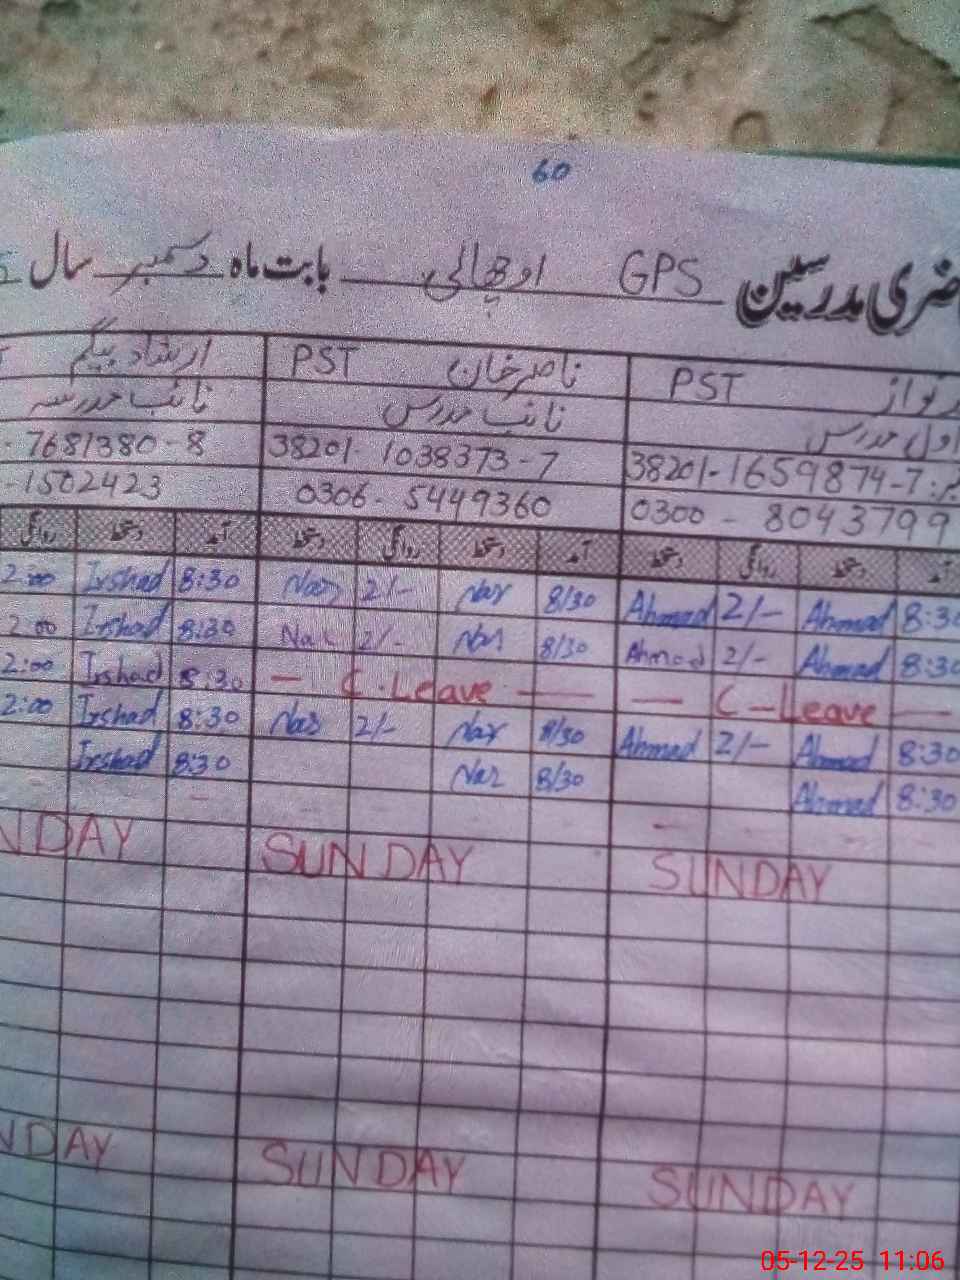 60
ضری مدرسین GPS اوچھالی بابت ماہ دسمبر سال
نواز PST ناصر خان PST ارشاد بیگم
اول مدرس نائب مدرس نائب مدرسہ
38201-1659874-7 38201-1038373-7 7681380-8
0300-8043799 0306-5449360 1502423
آمد دستخط روانگی دستخط آمد دستخط روانگی دستخط آمد دستخط روانگی
2:00 Irshad 8:30 Nas 2/- Nas 8/30 Ahmad 2/- Ahmad 8:30
2:00 Irshad 8:30 Nas 2/- Nas 8/30 Ahmad 2/- Ahmad 8:30
2:00 Irshad 8:30 — C.Leave — — C-Leave —
2:00 Irshad 8:30 Nas 2/- Nas 8/30 Ahmad 2/- Ahmad 8:30
Irshad 8:30 Nas 8/30 Ahmad 8:30
NDAY SUNDAY SUNDAY
NDAY SUNDAY SUNDAY
05-12-25 11:06